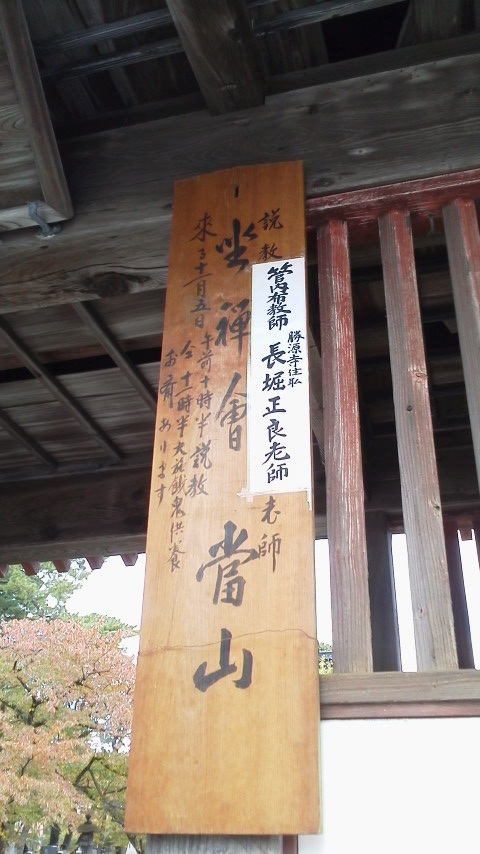 説教
管内布教師 勝源寺住職
長堀正良老師
老師
一 坐禅會 當山
来る十一月五日 午前十時半 説教
仝十一時半大施餓鬼供養
お斎あります